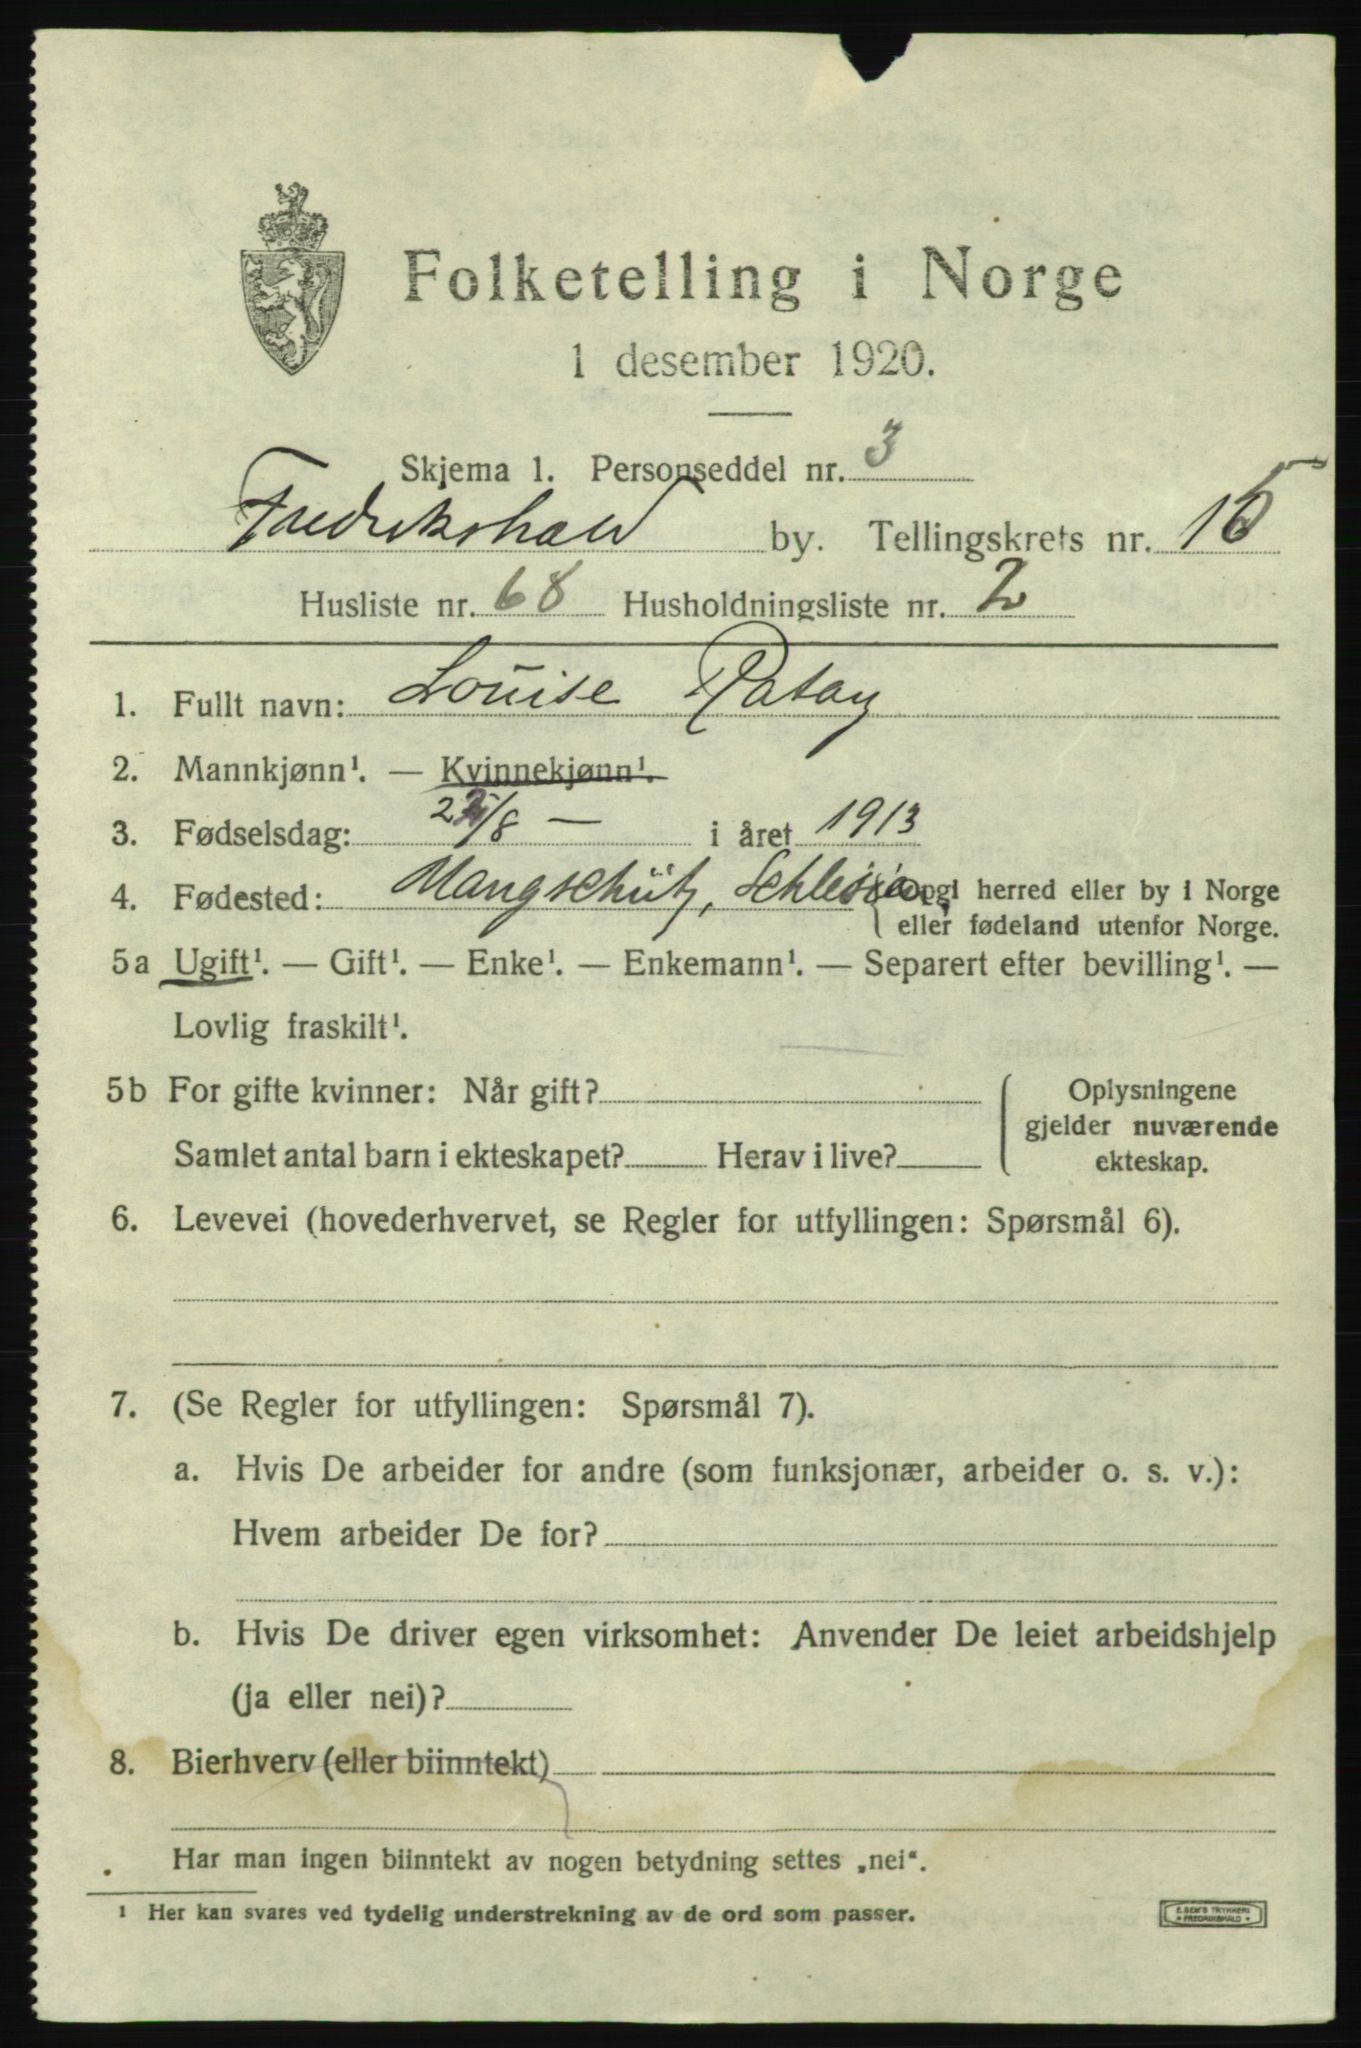 Folketelling i Norge
1 desember 1920.
Skjema 1. Personseddel nr. 3
Fredrikshald by. Tellingskrets nr. 15
Husliste nr. 68 Husholdningsliste nr. 2
1. Fullt navn: Louise Patay
2. Mannkjønn¹. — Kvinnekjønn¹.
3. Fødselsdag: /8 — i året 1913
4. Fødested: Mangschütz, Schlesien, (opgi herred eller by i Norge
eller fødeland utenfor Norge.
5a Ugift¹. — Gift¹. — Enke¹. — Enkemann¹. — Separert efter bevilling¹. —
Lovlig fraskilt¹.
5b For gifte kvinner: Når gift?
Oplysningene
gjelder nuværende
ekteskap.
Samlet antal barn i ekteskapet? Herav i live?
6. Levevei (hovederhvervet, se Regler for utfyllingen: Spørsmål 6).
7. (Se Regler for utfyllingen: Spørsmål 7).
a. Hvis De arbeider for andre (som funksjonær, arbeider o. s. v.):
Hvem arbeider De for?
b. Hvis De driver egen virksomhet: Anvender De leiet arbeidshjelp
(ja eller nei)?
8. Bierhverv (eller biinntekt)
Har man ingen biinntekt av nogen betydning settes „nei“.
¹ Her kan svares ved tydelig understrekning av de ord som passer.
E. SEM'S TRYKKERI
FREDRIKSHALD